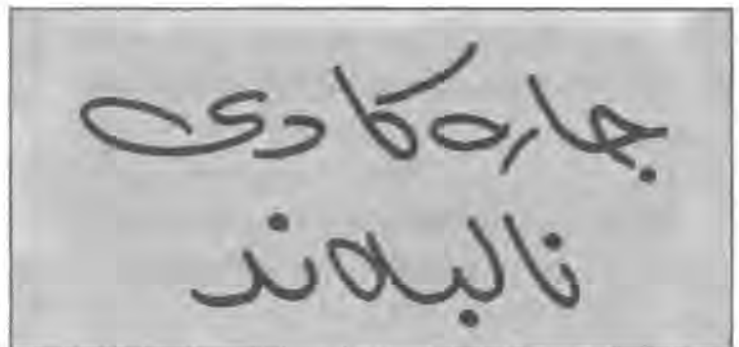 جارەکا دی
نالبەند